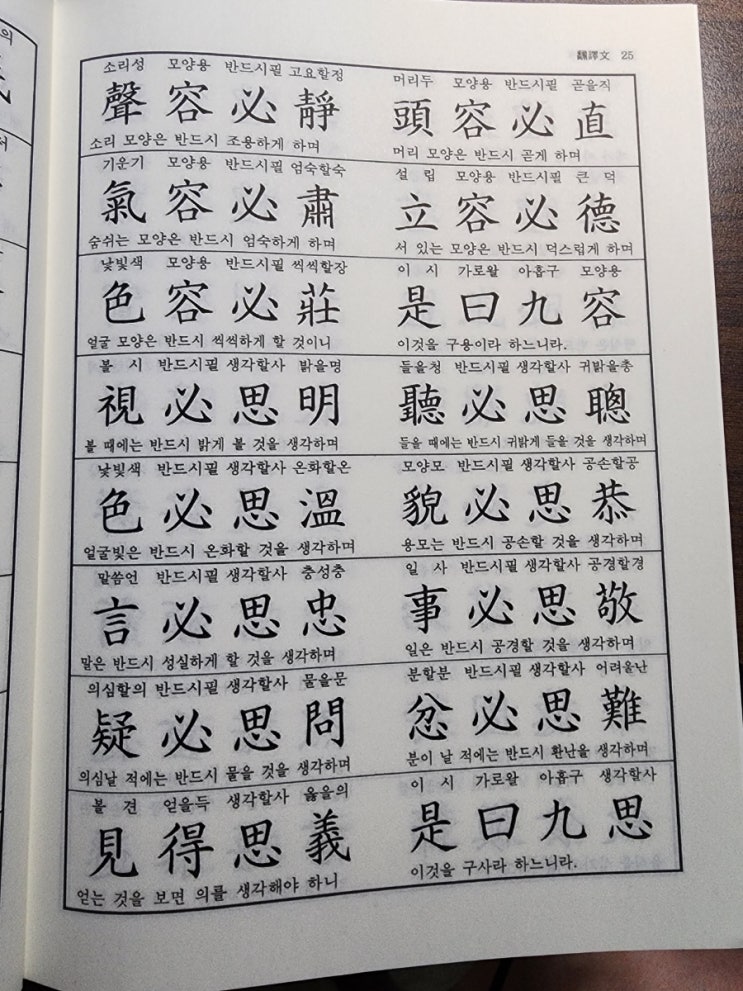 飜譯文 25
소리성 모양용 반드시필 고요할정
聲容必靜
소리 모양은 반드시 조용하게 하며
머리두 모양용 반드시필 곧을직
頭容必直
머리 모양은 반드시 곧게 하며
기운기 모양용 반드시필 엄숙할숙
氣容必肅
숨쉬는 모양은 반드시 엄숙하게 하며
설 립 모양용 반드시필 큰 덕
立容必德
서 있는 모양은 반드시 덕스럽게 하며
낯빛색 모양용 반드시필 씩씩할장
色容必莊
얼굴 모양은 반드시 씩씩하게 할 것이니
이 시 가로왈 아홉구 모양용
是曰九容
이것을 구용이라 하느니라.
볼 시 반드시필 생각할사 밝을명
視必思明
볼 때에는 반드시 밝게 볼 것을 생각하며
들을청 반드시필 생각할사 귀밝을총
聽必思聰
들을 때에는 반드시 귀밝게 들을 것을 생각하며
낯빛색 반드시필 생각할사 온화할온
色必思溫
얼굴빛은 반드시 온화할 것을 생각하며
모양모 반드시필 생각할사 공손할공
貌必思恭
용모는 반드시 공손할 것을 생각하며
말씀언 반드시필 생각할사 충성충
言必思忠
말은 반드시 성실하게 할 것을 생각하며
일 사 반드시필 생각할사 공경할경
事必思敬
일은 반드시 공경할 것을 생각하며
의심할의 반드시필 생각할사 물을문
疑必思問
의심날 적에는 반드시 물을 것을 생각하며
분할분 반드시필 생각할사 어려울난
忿必思難
분이 날 적에는 반드시 환난을 생각하며
볼 견 얻을득 생각할사 옳을의
見得思義
얻는 것을 보면 의를 생각해야 하니
이 시 가로왈 아홉구 생각할사
是曰九思
이것을 구사라 하느니라.